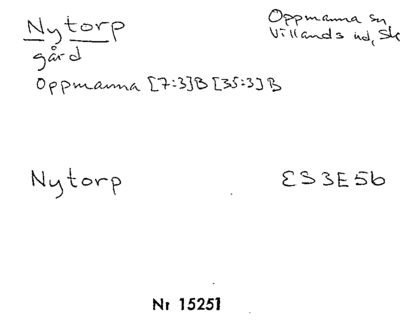 Nytorp
Oppmanna sn
Villands hd, Sk
gård
Oppmanna [7:3]B [35:3]B
Nytorp
ES3E5b
Nr 15251